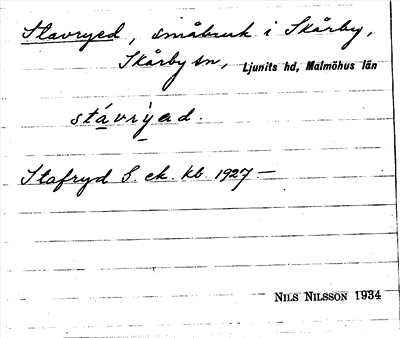 Stavryed, småbruk i Skårby,
Skårby sn, Ljunits hd, Malmöhus län
stávrỳed.
Stafryd S. ek. kb. 1927 —
NILS NILSSON 1934